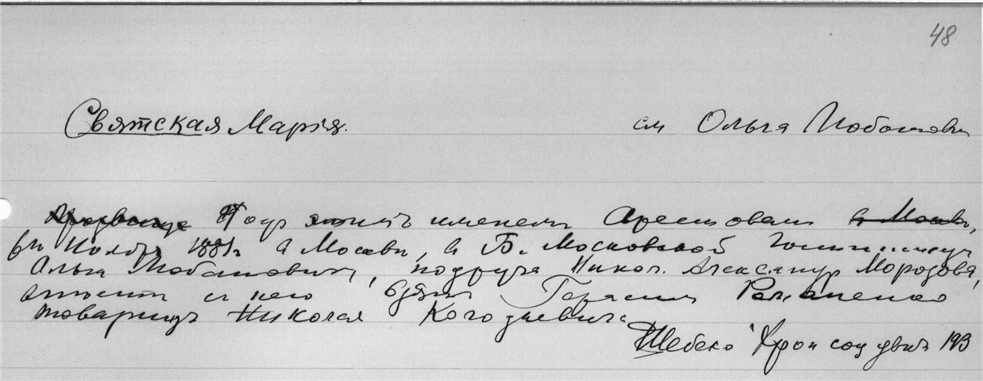 48
Святская Марія. см Ольга Любатович
Подъ этимъ именемъ арестована в Москвѣ,
въ Ноябрѣ 1881 г. в Москвѣ, в Б. Московской Гостинницѣ
Ольга Любатович, подруга Никол. Александр Морозова,
вместѣ с нею взят Герасим Романенко
товарищъ Николая Колодкевича
Шебеко Хрон соц движ 193